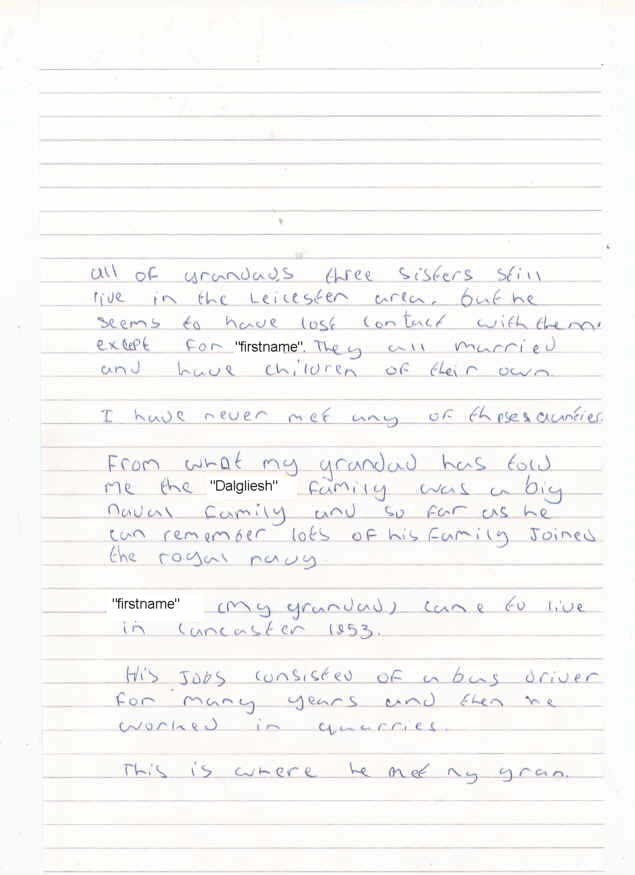 all of grandads three sisters still
live in the Leicester area, but he
seems to have lost contact with them.
except for "firstname". They all married
and have children of their own.
I have never met any of theses aunties.
From what my grandad has told
me the "Dalgliesh" family was a big
naval family and so far as he
can remember lots of his family Joined
the royal navy.
"firstname" (my grandad) came to live
in Lancaster 1953.
His Jobs consisted of a bus driver
for many years and then he
worked in quarries.
This is where he met my gran.